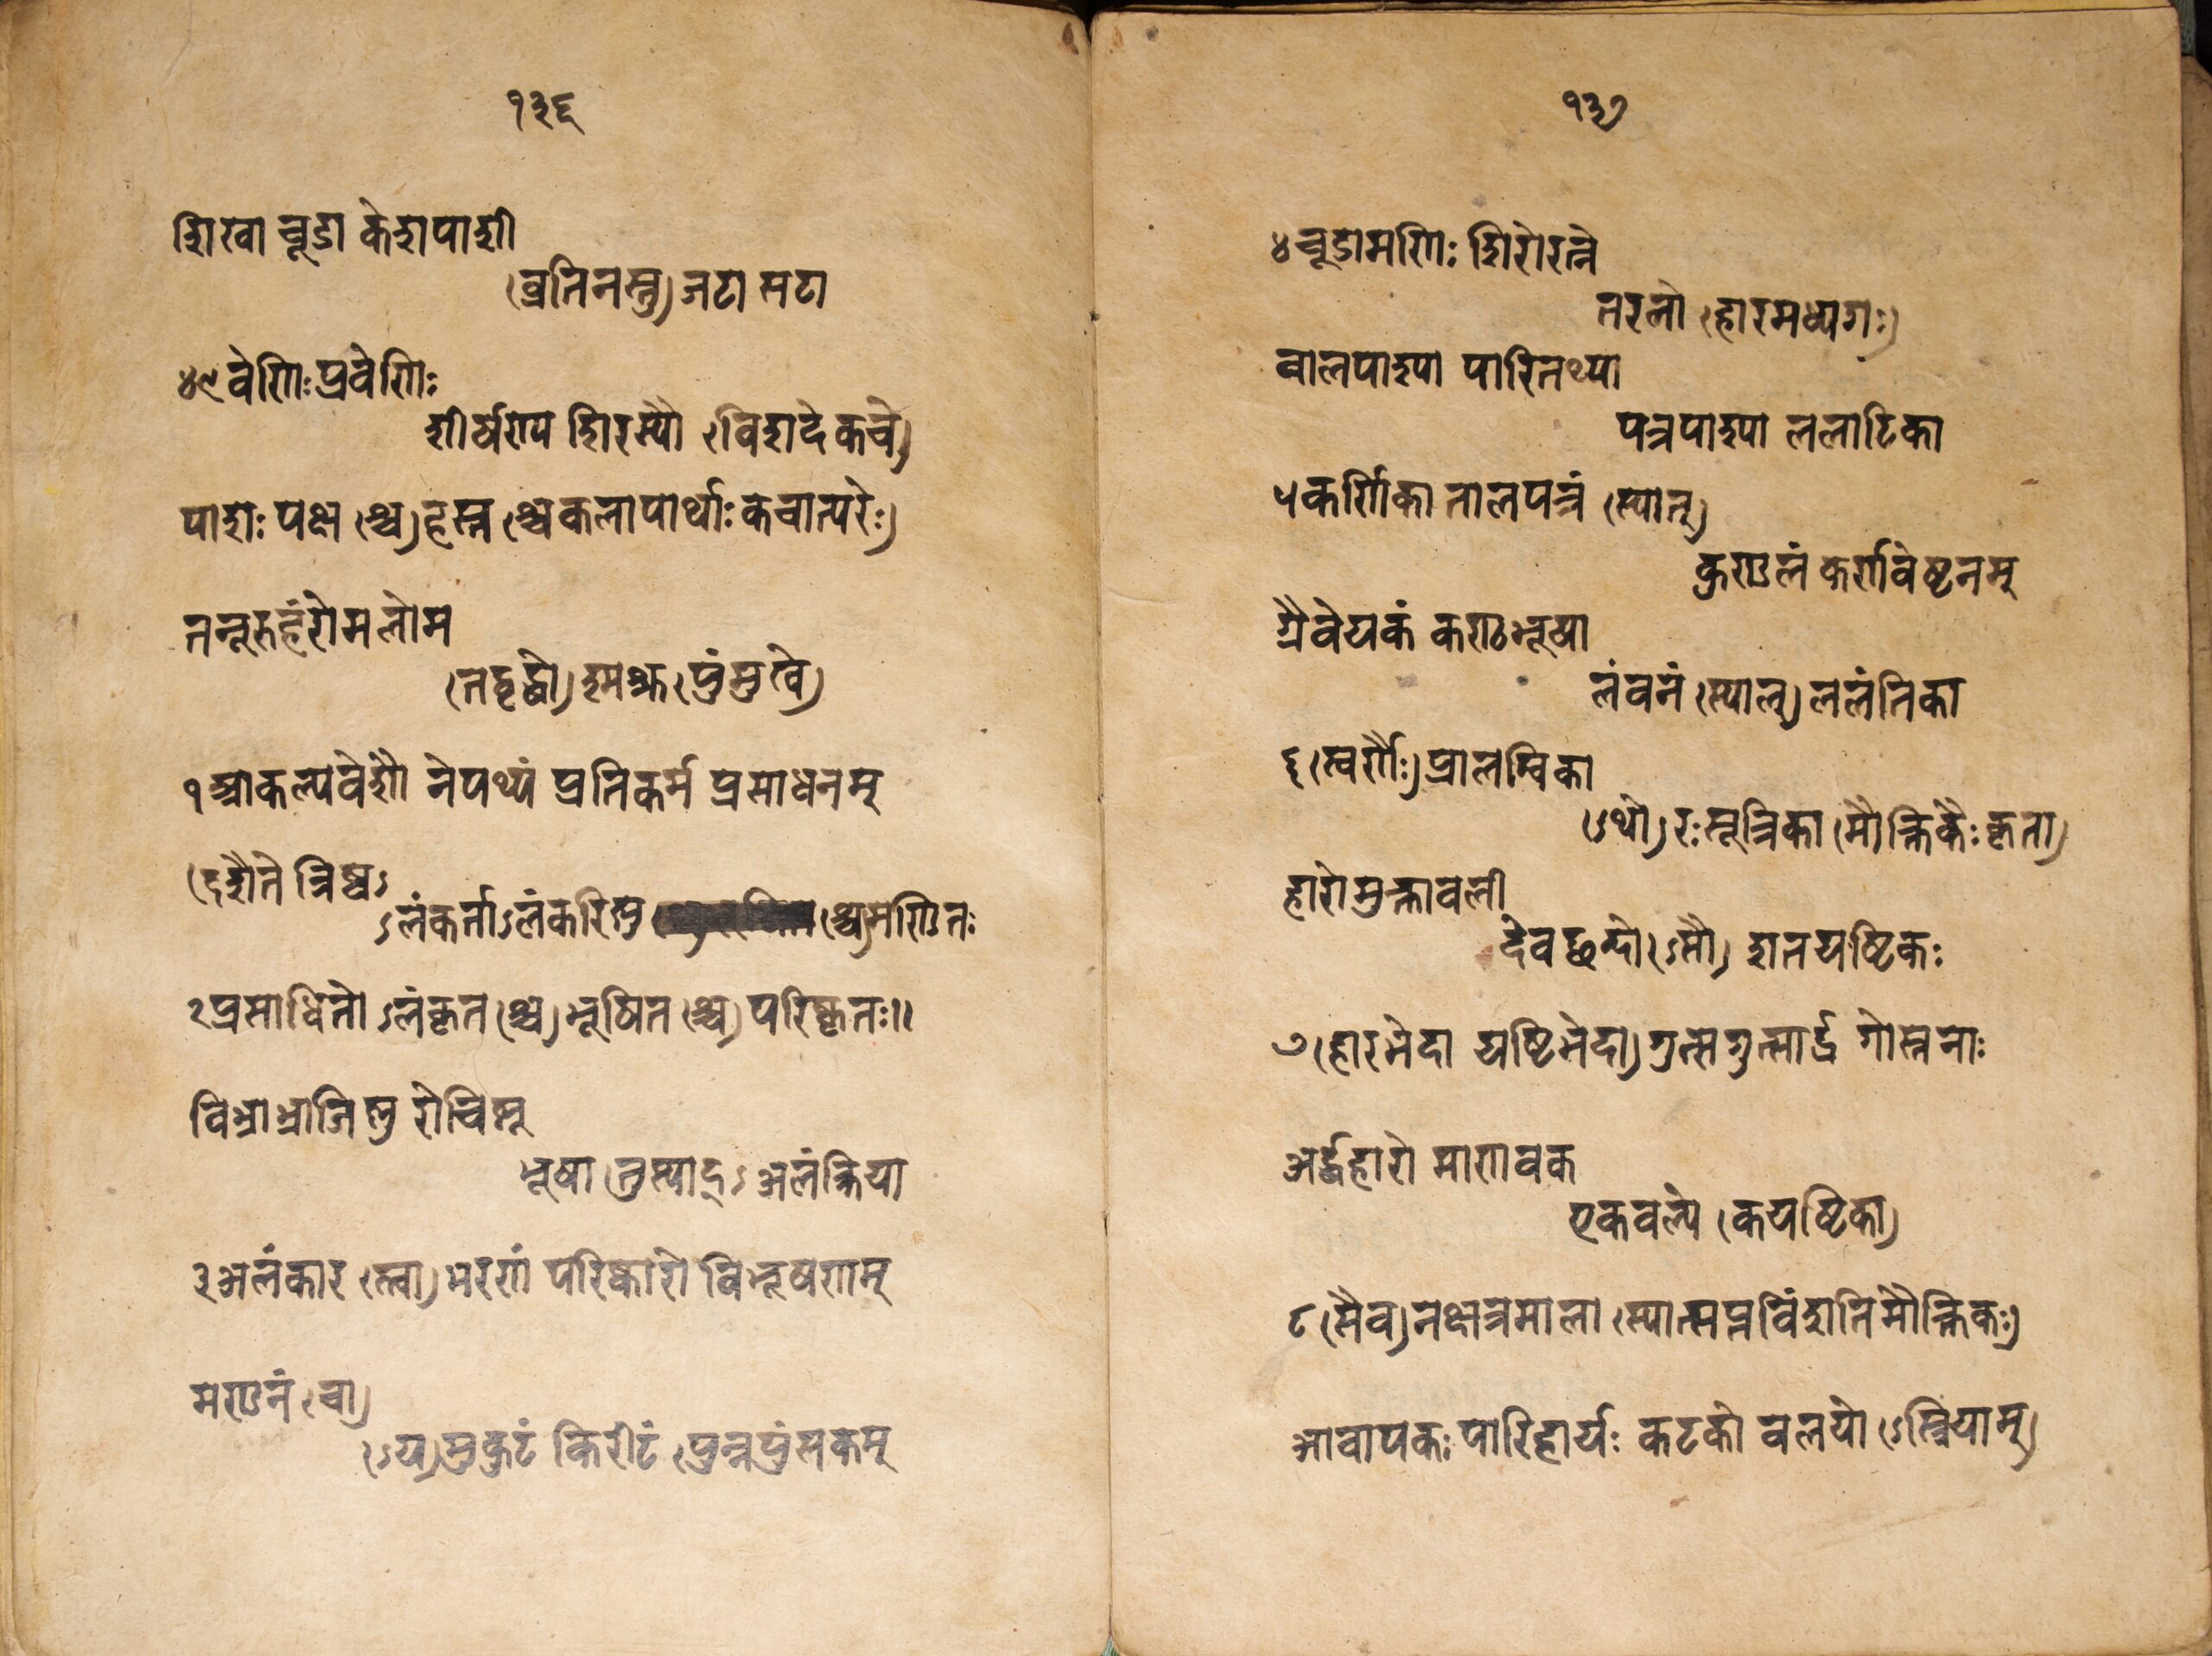 १३६
शिखा चूडा केशपाशी
(व्रतिनस्तु) जटा सटा
४९ वेणिः प्रवेणिः
शीर्षण्य शिरस्यौ (विशदे कचे)
पाशः पक्ष (श्च) हस्त (श्च कलापार्थाः कचात्परे:)
तनूरुहंरोम लोम
(तद्वृद्धौ) श्मश्रु (पुंमुखे)
१ आकल्पवेशौ नेपथ्यं प्रतिकर्म प्रसाधनम्
(दशैते त्रिष्व ऽ
ऽलंकर्ताऽलंकरिष्णु श्च) मण्डितः
२ प्रसाधितो ऽलंकृत (श्च) भूषित (श्च) परिष्कृतः॥
विभ्राभ्राजिष्णु रोचिष्णू
भूषा (तुस्याद् ऽ अलंक्रिया
३ अलंकार (स्त्वा) भरणं परिष्कारो विभूषणम्
मण्डनं (चा)
(ऽथ) मुकुटं किरीटं (पुन्नपुंसकम्
१३७
४ चूडामणिः शिरोरत्नं
तरलो (हारमध्यगः)
वालपाश्या पारितथ्या
पत्रपाश्या ललाटिका
५ कर्णिका तालपत्रं (स्यात्)
कुण्डलं कर्णवेष्टनम्
ग्रैवेयकं कण्ठभूषा
लंवनं (स्याल्) ललंतिका
६ (स्वर्णैः) प्रालम्विका
(ऽथो) रः सूत्रिका (मौक्तिकैः कृता)
हारो मुक्तावली
देवछन्दो (ऽसौ) शतयष्टिकः
७ (हारभेदा यष्टिभेदा) गुत्स गुत्सार्द्ध गोस्तनाः
अर्द्धहारो माणवक
एकवल्ये (कयष्टिका)
८ (सैव) नक्षत्रमाला (स्यात्सप्तविंशतिमौक्तिकः)
आवापकः पारिहार्यः कटको वलयो (ऽस्त्रियाम्)